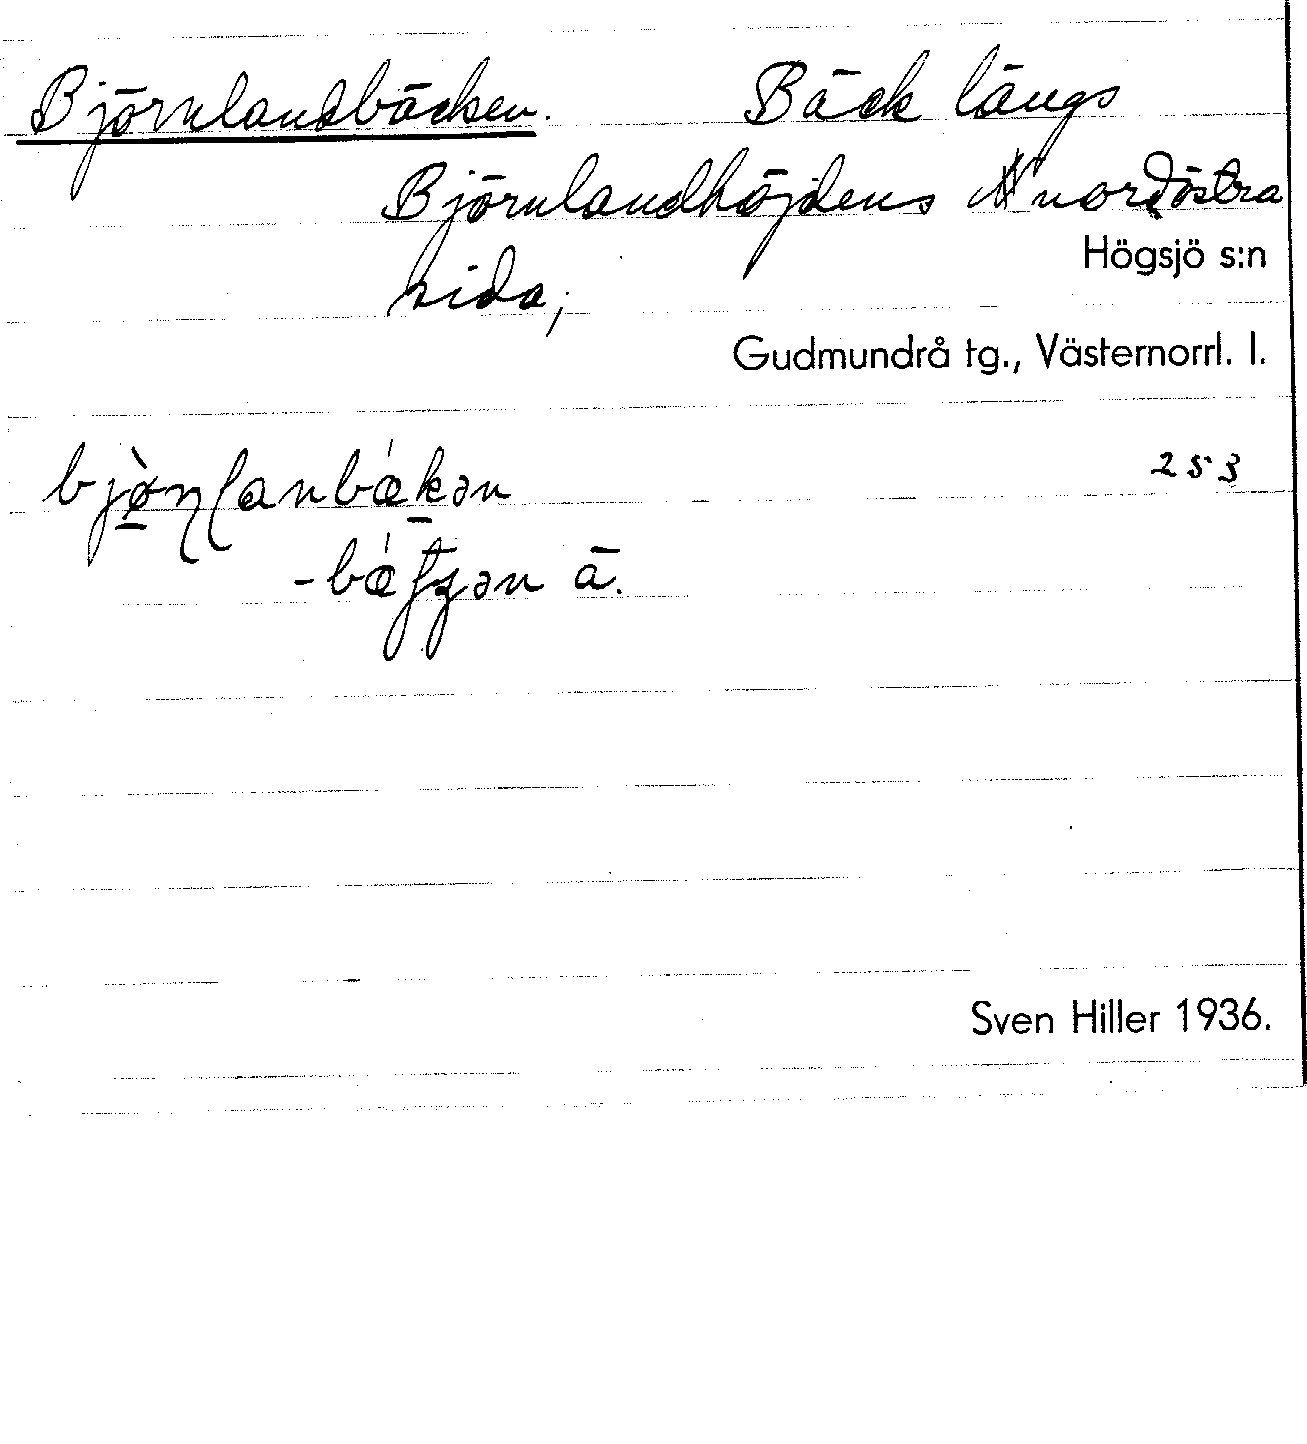 Björnlandbäcken. Bäck längs
Björnlandhöjdens nordöstra
sida,
Högsjö s:n
Gudmundrå tg., Västernorrl. l.
bjø̀ɳɭanbǽkən 253
-bǽʈʂən ä.
Sven Hiller 1936.